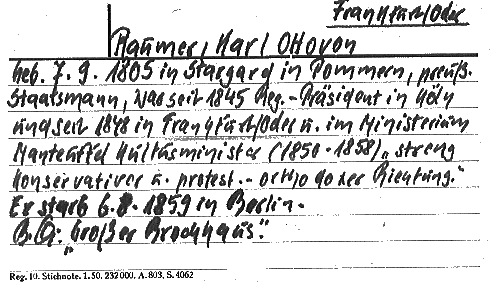 Frankfurt/Oder
Raumer, Karl Otto von
Geb. 7. 9. 1805 in Stargard in Pommern, preuß.
Staatsmann, war seit 1845 Reg.-Präsident in Köln
und seit 1848 in Frankfurt/Oder u. im Ministerium
Manteuffel Kultusminister (1850-1858) „streng
konservativer u. protest.-orthodoxer Richtung."
Er starb 6. 8. 1859 in Berlin.
B.Q: „Großer Brockhaus".
Reg. 10. Stichnote. 1.50. 232000. A. 803, S. 4062